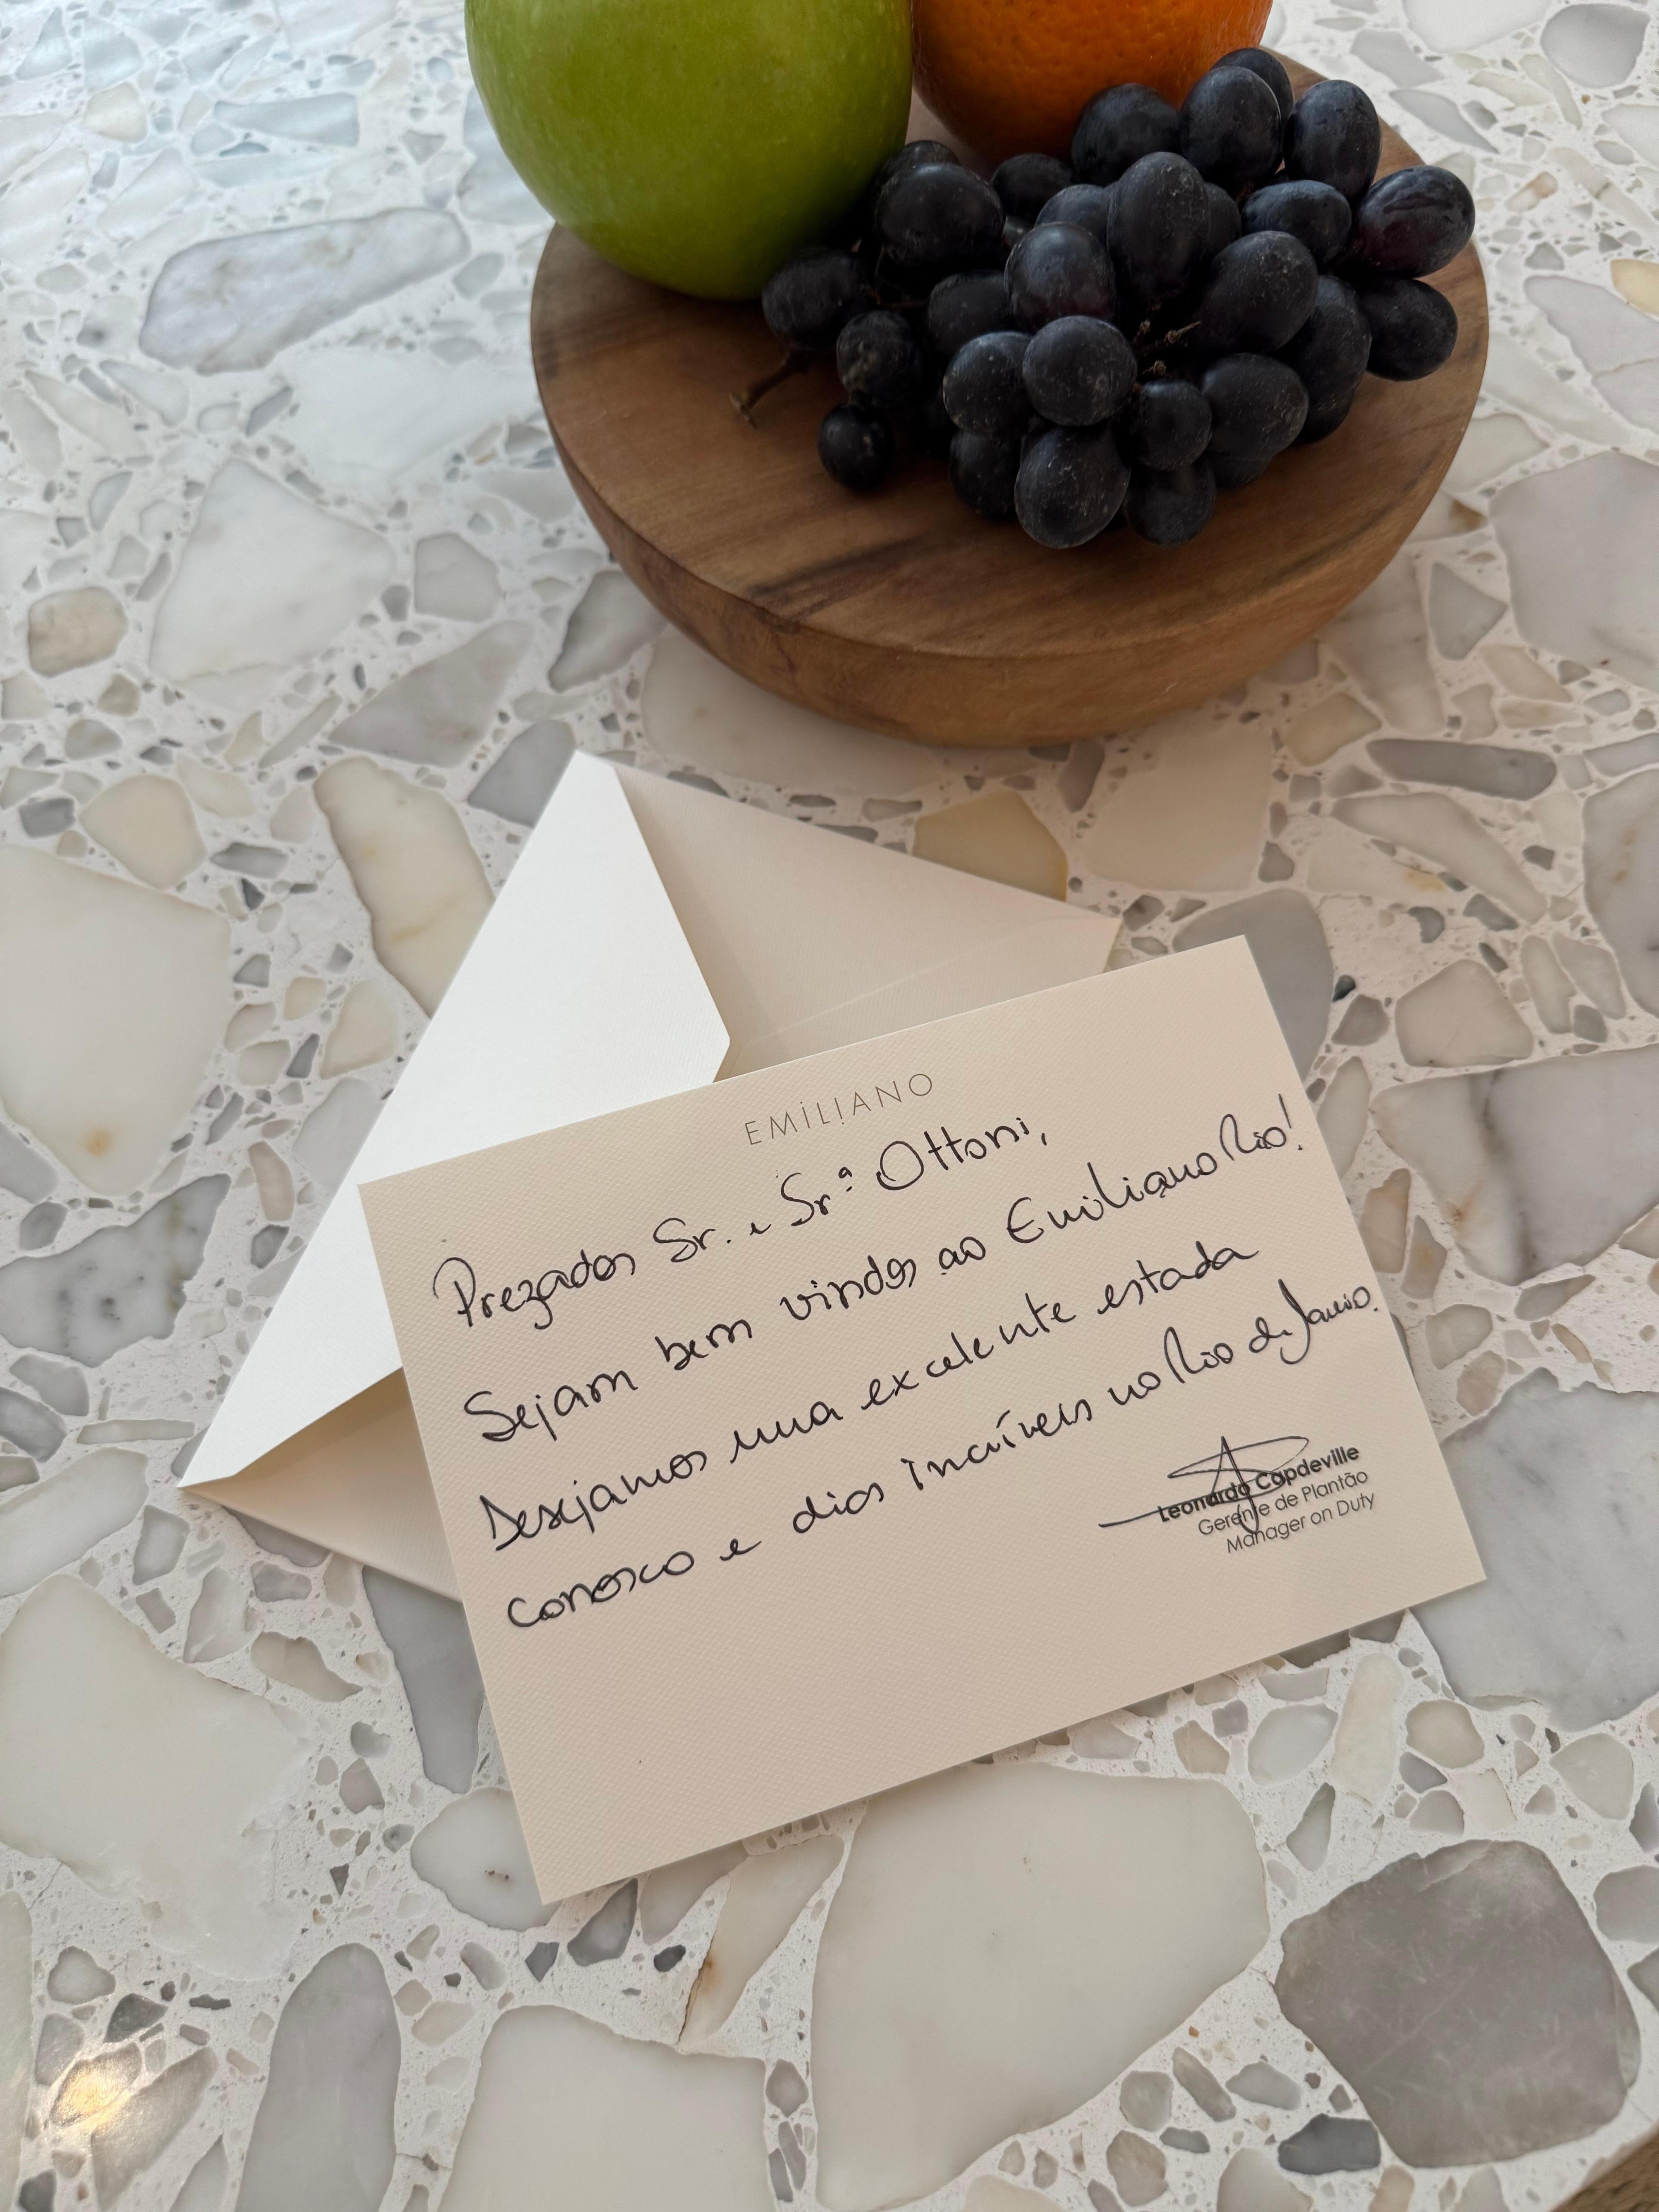 EMILIANO
Prezados Sr. e Srª Ottoni,
Sejam bem vindos ao Emiliano Rio!
Desejamos uma excelente estada
conosco e dias incríveis no Rio de Janeiro.
Leonardo Capdeville
Gerente de Plantão
Manager on Duty